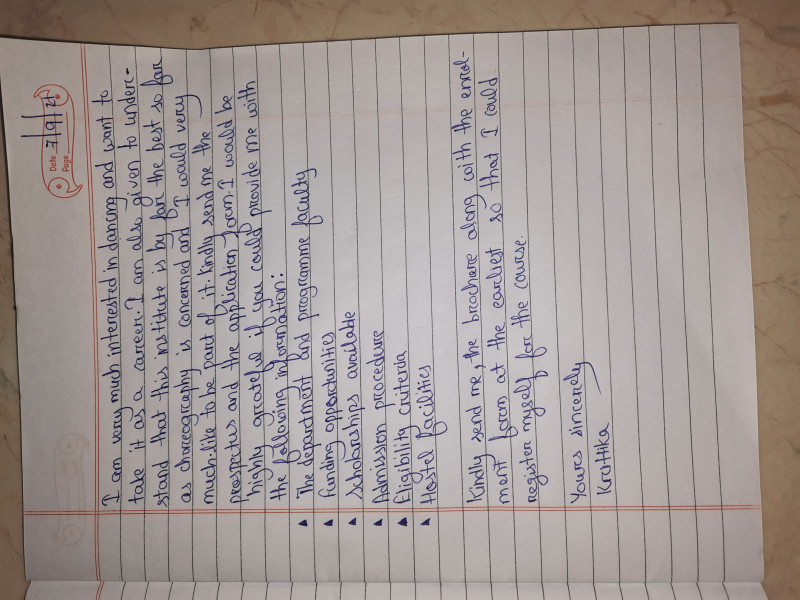 Date 7/9/21
Page
I am very much interested in dancing and want to
take it as a career. I am also given to under-
stand that this institute is by far the best so far
as choreography is concerned and I would very
much like to be part of it. Kindly send me the
prospectus and the application form. I would be
highly grateful if you could provide me with
the following information:
▲ The department and programme faculty
▲ Funding opportunities
▲ Scholarships available
▲ Admission procedure
▲ Eligibility criteria
▲ Hostel facilities
Kindly send me, the brochure along with the enrol-
ment form at the earliest so that I could
register myself for the course.
Yours sincerely
Krattika